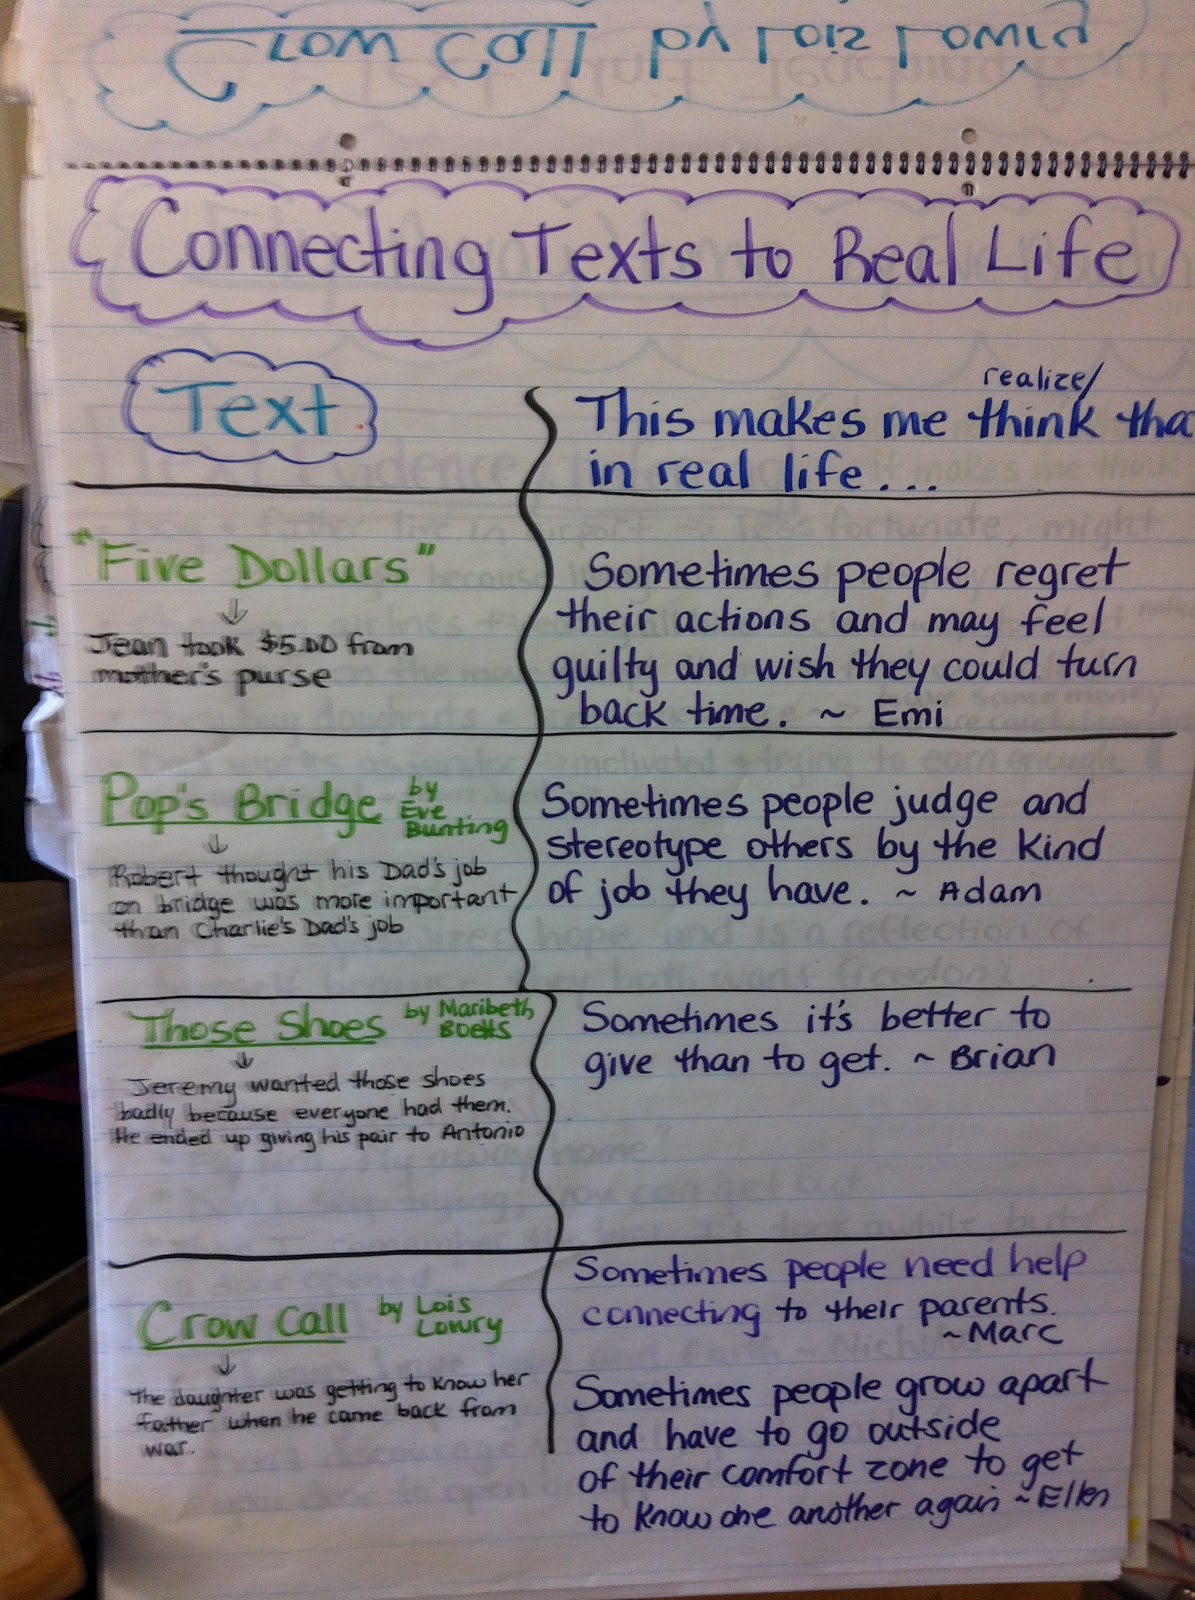 Crow Call by Lois Lowry
Connecting Texts to Real Life
Text
realize/
This makes me think tha
in real life...
"Five Dollars"
Jean took $5.00 from
mother's purse
Sometimes people regret
their actions and may feel
guilty and wish they could turn
back time. ~ Emi
Pop's Bridge by
Eve
Bunting
Robert thought his Dad's job
on bridge was more important
than Charlie's Dad's job
Sometimes people judge and
stereotype others by the kind
of job they have. ~ Adam
Those Shoes by Maribeth
Boelts
Jeremy wanted those shoes
badly because everyone had them.
He ended up giving his pair to Antonio
Sometimes it's better to
give than to get. ~ Brian
Crow Call by Lois
Lowry
The daughter was getting to know her
father when he came back from
war.
Sometimes people need help
connecting to their parents.
~Marc
Sometimes people grow apart
and have to go outside
of their comfort zone to get
to know one another again ~Ellen